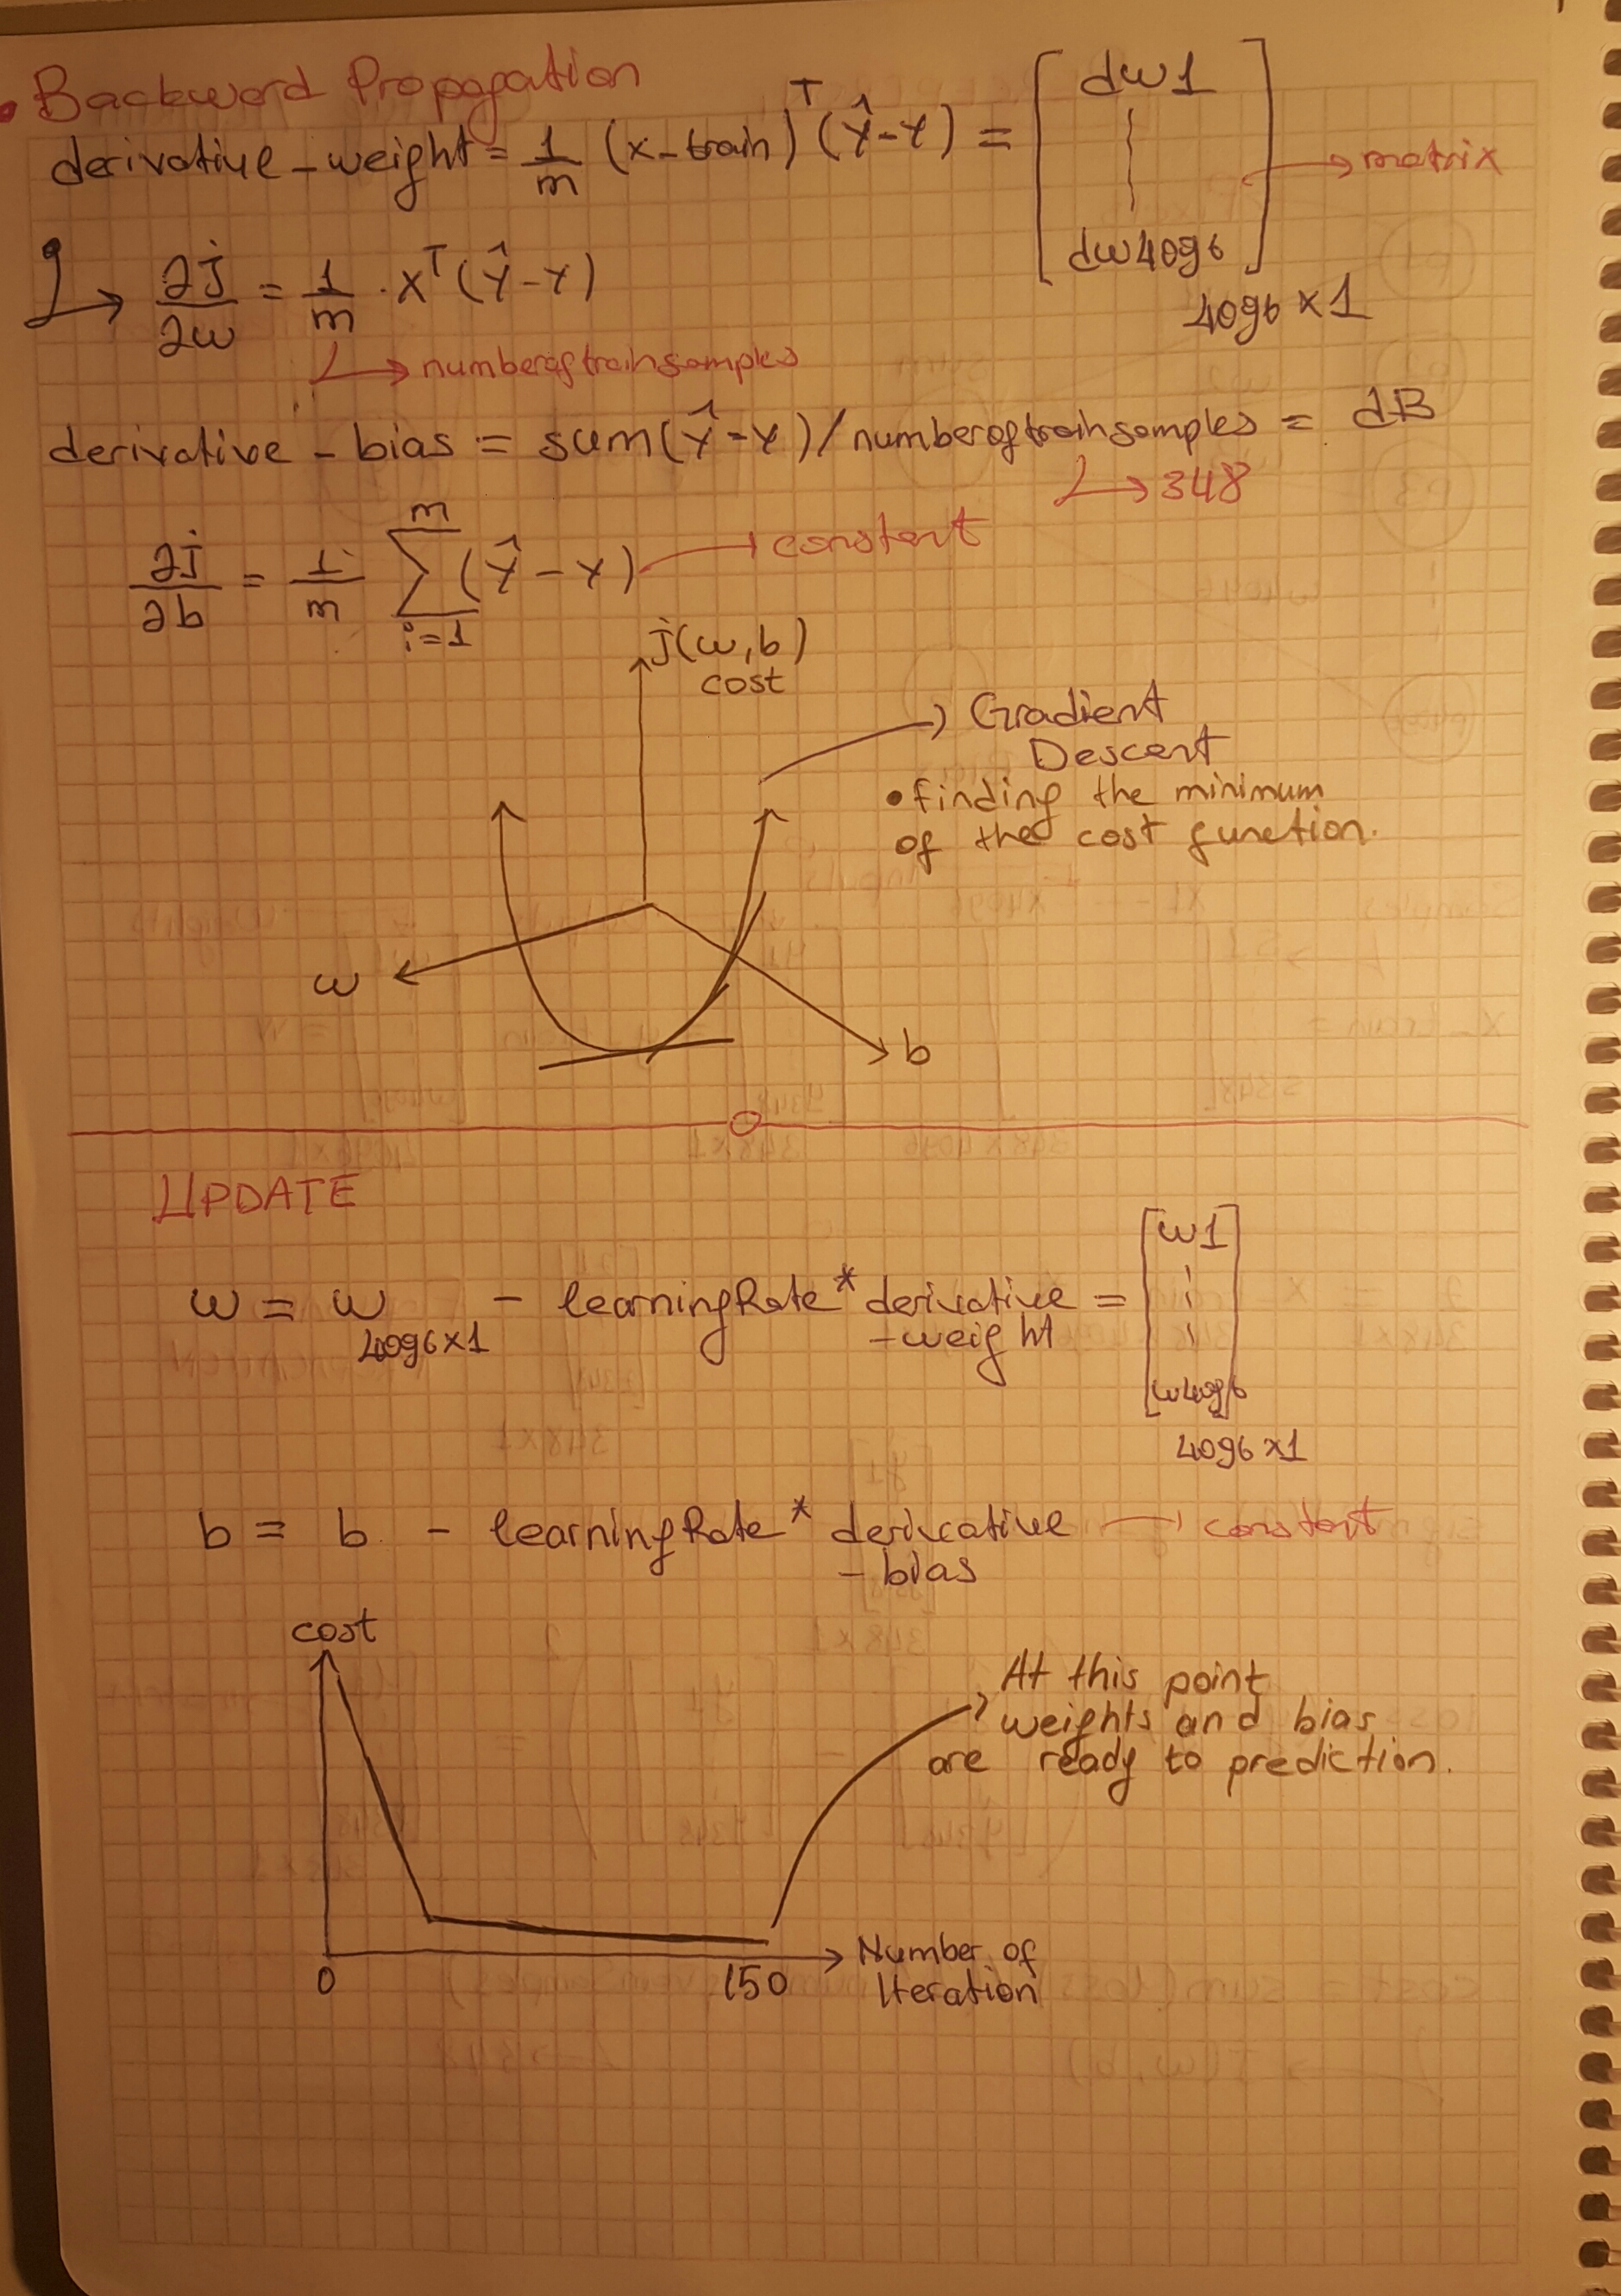 Backward Propagation
derivative-weight = 1/m (x-train)^T (Ŷ-Y) = [dw1 ... dw4096] → matrix
4096 x 1
∂J/∂w = 1/m . X^T (Ŷ-Y)
→ numberoftrainsamples
derivative-bias = sum(Ŷ-Y)/numberoftrainsamples = dB
→ 348
∂J/∂b = 1/m ∑_{i=1}^{m} (Ŷ-Y) → constant
J(w,b)
cost
Gradient
Descent
• finding the minimum
of the cost function.
w
b
UPDATE
w = w - learningRate * derivative = [w1 ... w4096]
4096x1 -weight
4096 x1
b = b - learningRate * derivative → constant
-bias
cost
At this point
weights and bias
are ready to prediction.
0 150 Number of
Iteration